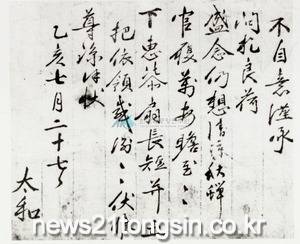 不自意謹承
問札良荷
盛念仍想清秋
官履萬安
下惠漆扇長短并五
把依領感伏惟
尊
乙亥七月二十七日
太和
news21tongsin.co.kr